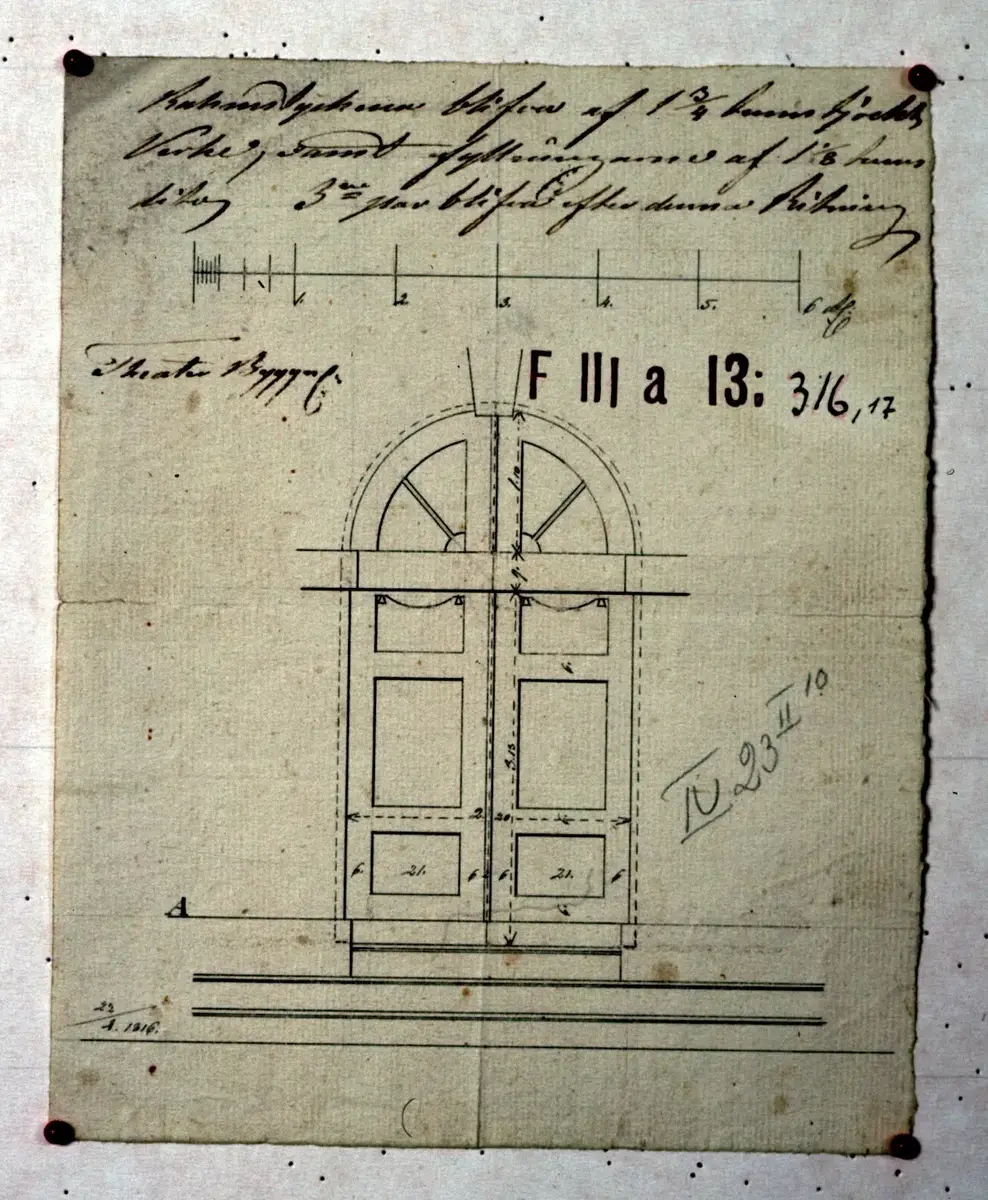 Ramstyckena blifva af 1 3/4 tums tjockt
Virke, samt fyllningarne af 1 1/8 tums
dito, 3ne par blifva efter denna Ritning
1. 2 3. 4. 5. 6 al.
Theater Byggn.
F III a 13: 316, 17
1.10
9.
6.
3.15
2. 20
6. 21. 6. 6 21. 6
6.
A
IV 23 II 10
22/4. 1816.